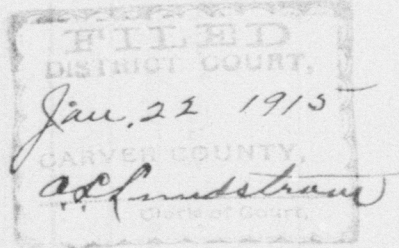 FILED
DISTRICT COURT,
Jan. 22 1915
CARVER COUNTY,
C. L. Lundstrom
Clerk of Court,